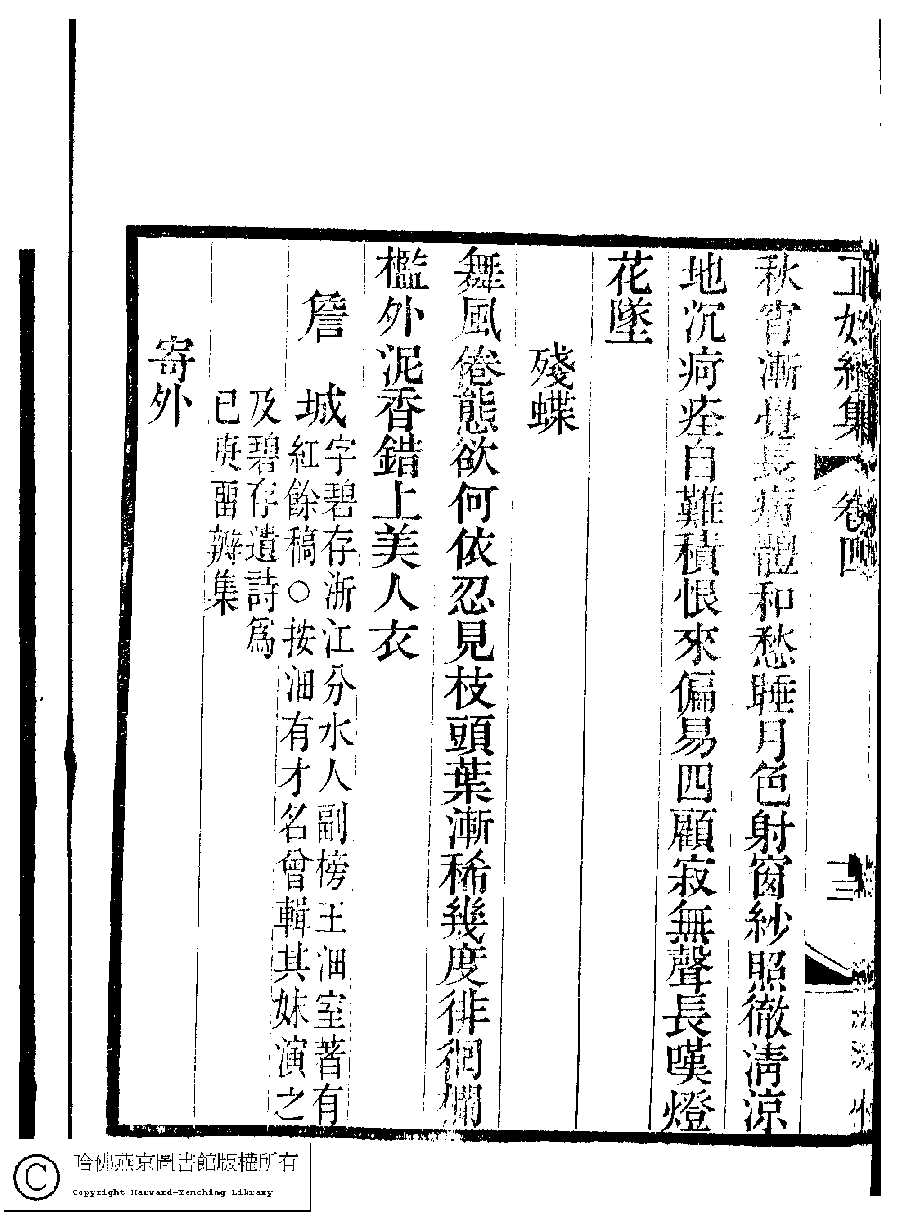 正始續集 卷四 三
秋宵漸覺長病體和愁睡月色射窗紗照徹淸涼
地沉疴痊自難積恨來偏易四顧寂無聲長嘆燈
花墜
殘蝶
舞風倦態欲何依忍見枝頭葉漸稀幾度徘徊欄
檻外泥香錯上美人衣
詹城
字碧存浙江分水人副榜王沺室著有
紅餘稿○按沺有才名曾輯其妹演之
及碧存遺詩爲
已庚畱瓣集
寄外
哈佛燕京圖書館版權所有
Copyright Harvard-Yenching Library